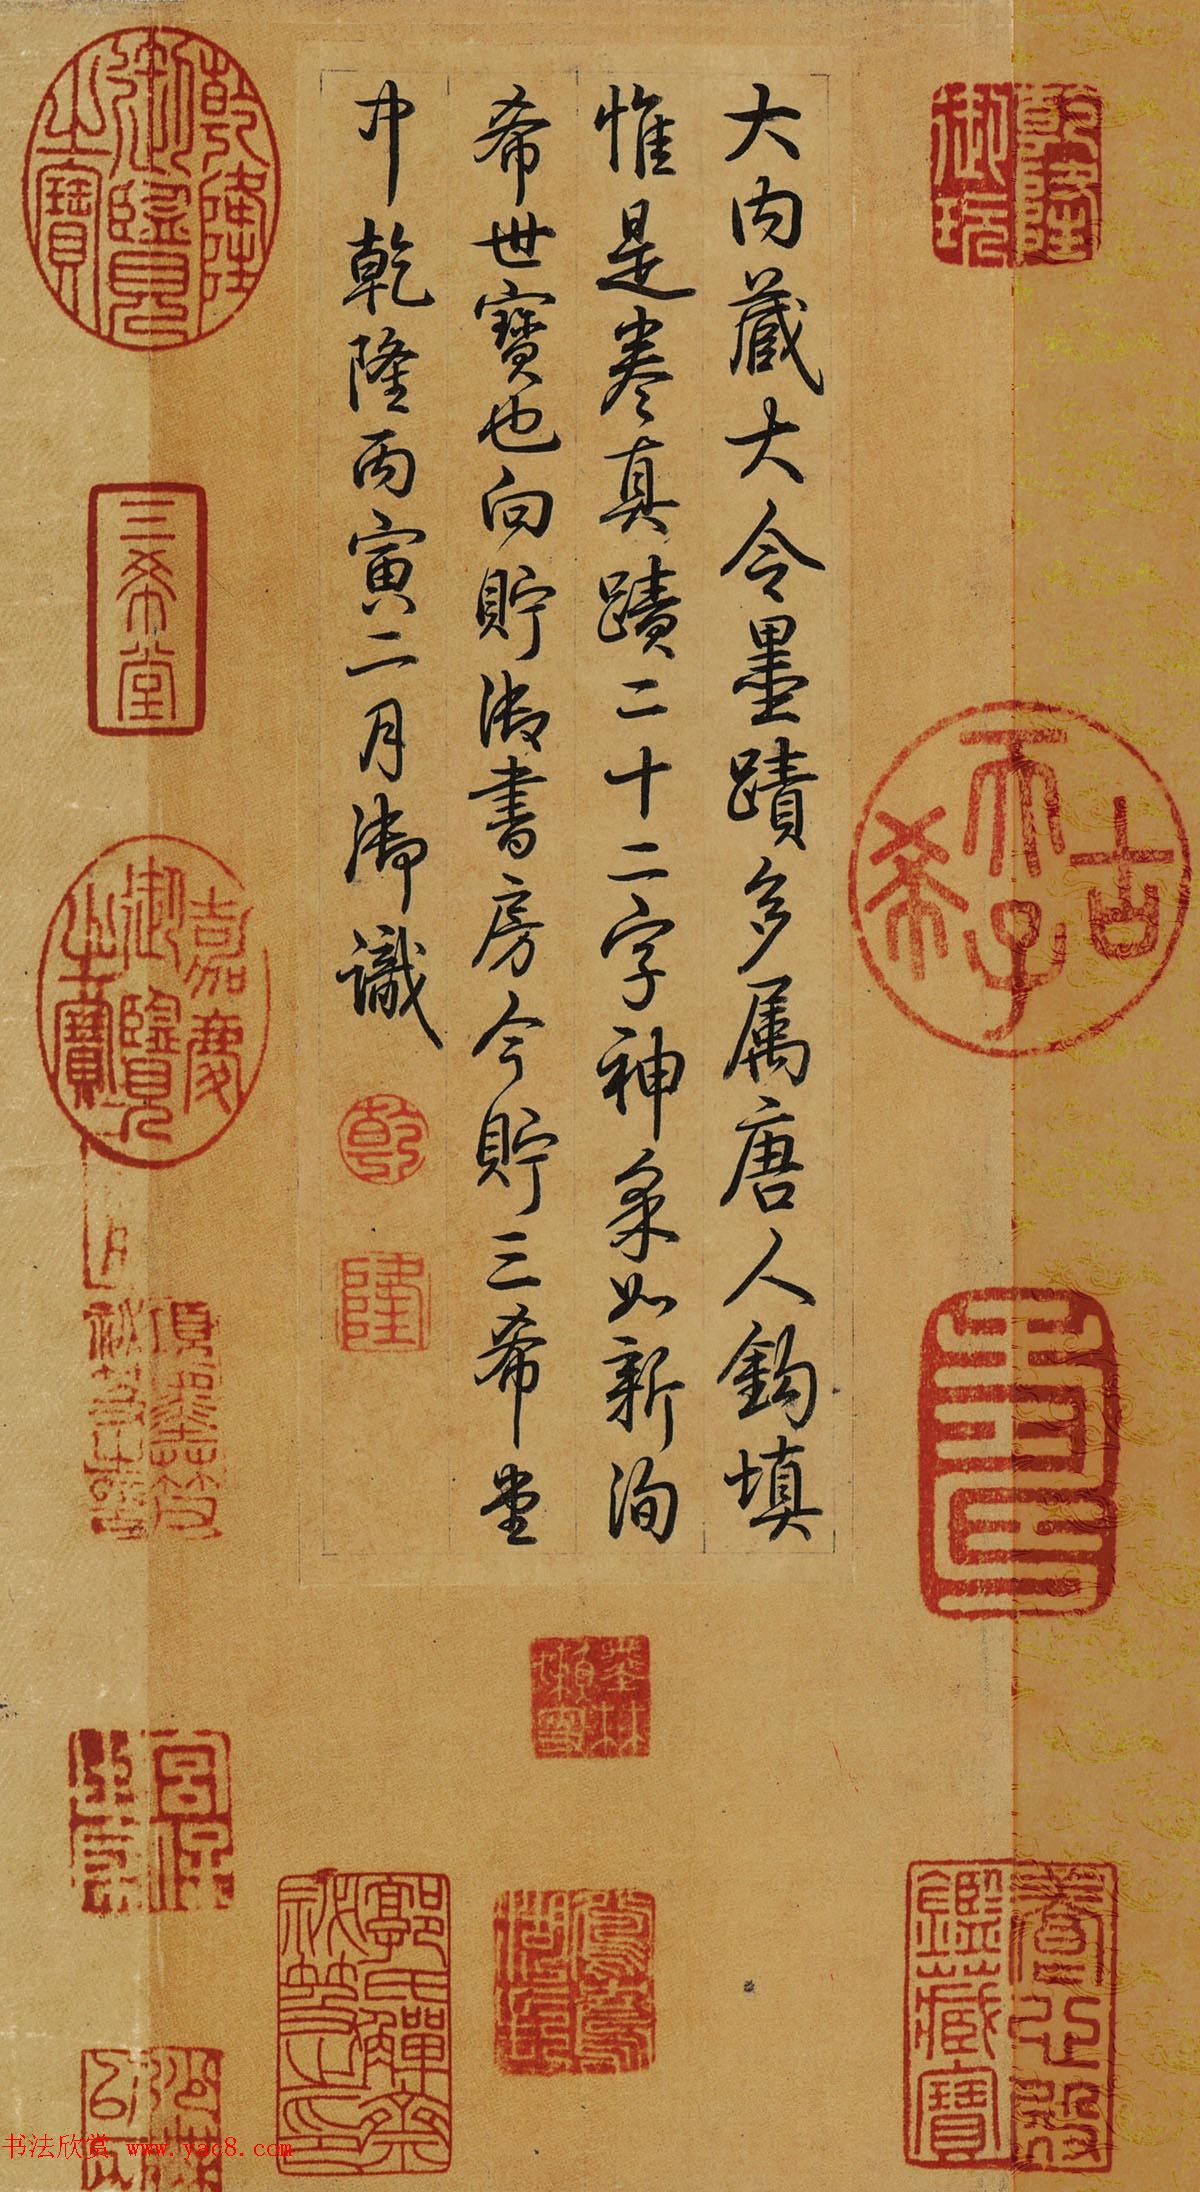 大内藏大令墨蹟多属唐人鈎填
惟是卷真蹟二十二字神采如新洵
希世寶也向貯御書房今貯三希堂
中乾隆丙寅二月御識
乾
隆
乾隆御玩
古希天子
養心殿鑑藏寶
乾隆御覽之寶
三希堂
嘉慶御覽之寶
項墨林
宮保
郭氏觶齋秘笈之印
書法欣赏 www.yac8.com